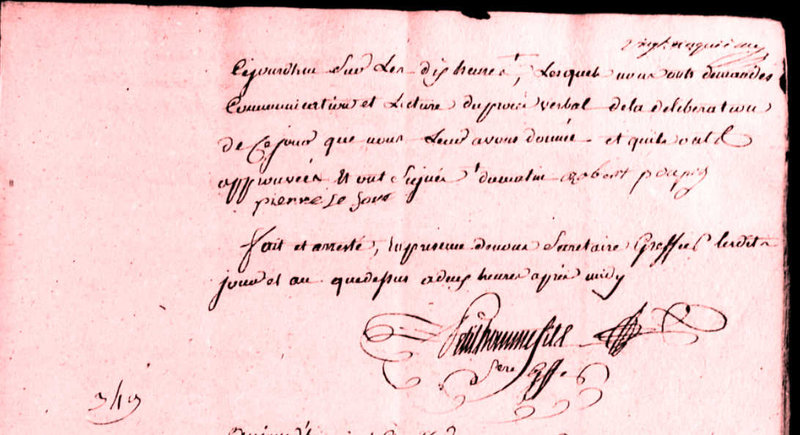 vingt cinquieme
Cejourdhui sur Les dix heures †, Lesquels nous onts demandés
Communication et Lecture du procès verbal dela deliberation
de Ce jour que nous Leur avons donnée et quils ont
approuvéé Et ont Signés † du matin robert
pierre Le
fait et arresté, En presence denous Secretaire Greffier lesdits
jour et an quedessus adeux heures après midy
Petithomme fils
Sere Gffe
349